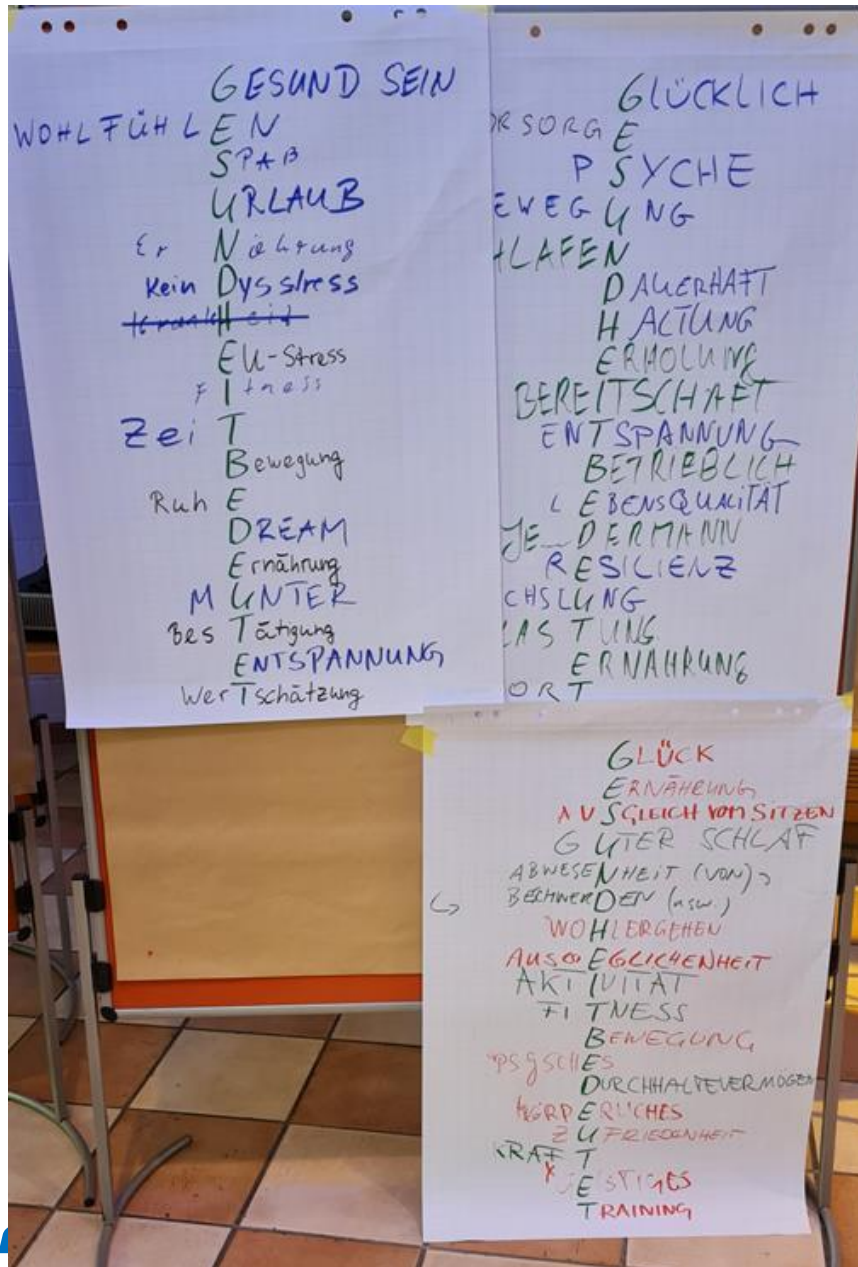 GESUND SEIN
WOHLFÜHLEN
SPAß
URLAUB
ErNährung
Kein Dysstress
Krankheid
EU-Stress
FItness
ZeiT
Bewegung
RuhE
DREAM
Ernährung
MUNTER
BesTätigung
ENTSPANNUNG
WerTschätzung
GLÜCKLICH
ORSORGE
PSYCHE
EWEGUNG
HLAFEN
DAUERHAFT
HALTUNG
ERHOLUNG
BEREITSCHAFT
ENTSPANNUNG
BETRIEBLICH
LEBENSQUALITÄT
JEDERMANN
RESILIENZ
CHSLUNG
LASTUNG
ERNÄHRUNG
ORT
GLÜCK
ERNÄHRUNG
AUSGLEICH VOM SITZEN
GUTER SCHLAF
ABWESENHEIT (VON)
BECHWERDEN (usw.)
WOHLERGEHEN
AUSGEGLICHENHEIT
AKTIVITÄT
FITNESS
BEWEGUNG
DURCHHALTEVERMÖGEN
KÖRPERLICHES
ZUFRIEDENHEIT
KRAFT
GEISTIGES
TRAINING